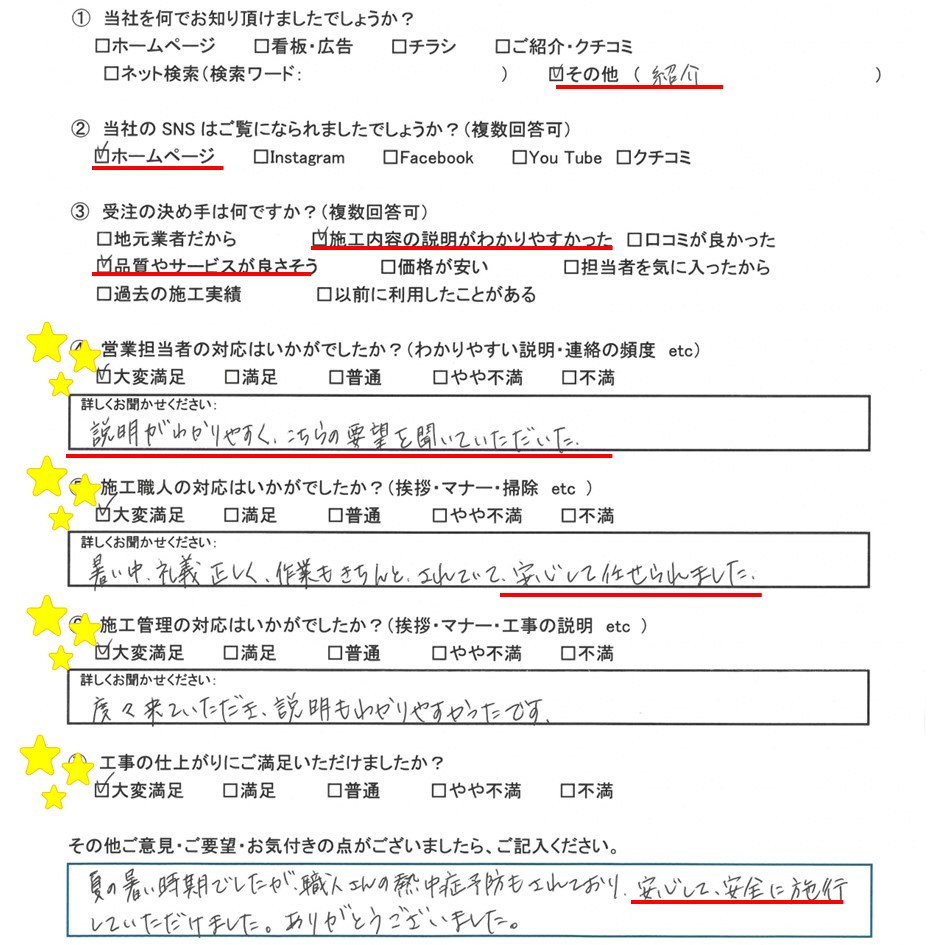 ① 当社を何でお知り頂けましたでしょうか？
□ホームページ □看板・広告 □チラシ □ご紹介・クチコミ
□ネット検索（検索ワード： ） ☑その他（ 紹介 ）
② 当社の SNS はご覧になられましたでしょうか？（複数回答可）
☑ホームページ □Instagram □Facebook □You Tube □クチコミ
③ 受注の決め手は何ですか？（複数回答可）
□地元業者だから ☑施工内容の説明がわかりやすかった □口コミが良かった
☑品質やサービスが良さそう □価格が安い □担当者を気に入ったから
□過去の施工実績 □以前に利用したことがある
営業担当者の対応はいかがでしたか？（わかりやすい説明・連絡の頻度 etc）
☑大変満足 □満足 □普通 □やや不満 □不満
詳しくお聞かせください：
説明がわかりやすく、こちらの要望を聞いていただいた。
施工職人の対応はいかがでしたか？（挨拶・マナー・掃除 etc ）
☑大変満足 □満足 □普通 □やや不満 □不満
詳しくお聞かせください：
暑い中、礼義正しく、作業もきちんと、されていて、安心して任せられました。
施工管理の対応はいかがでしたか？（挨拶・マナー・工事の説明 etc ）
☑大変満足 □満足 □普通 □やや不満 □不満
詳しくお聞かせください：
度々来ていただき、説明もわかりやすかったです。
工事の仕上がりにご満足いただけましたか？
☑大変満足 □満足 □普通 □やや不満 □不満
その他ご意見・ご要望・お気付きの点がございましたら、ご記入ください。
夏の暑い時期でしたが、職人さんの熱中症予防もされており、安心して、安全に施行
していただけました。ありがとうございました。